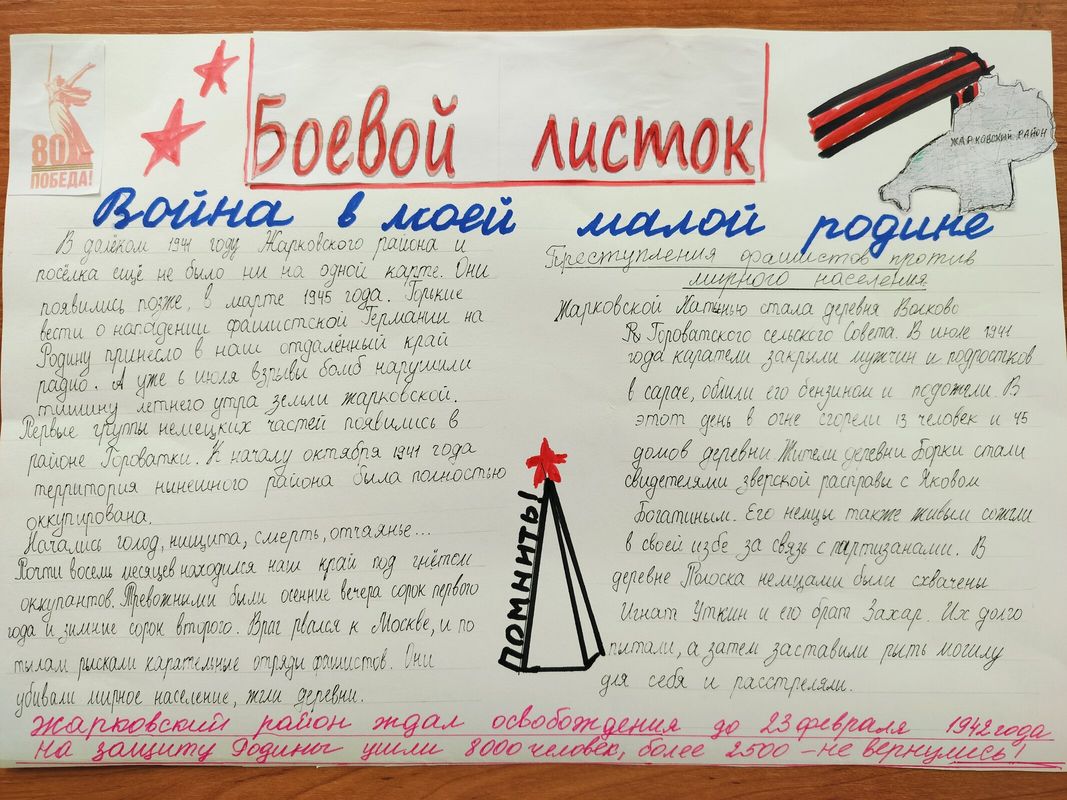 80
ПОБЕДА!
Боевой листок
ЖАРКОВСКИЙ РАЙОН
Война в моей малой родине
В далёком 1941 году Жарковского района и
посёлка ещё не было ни на одной карте. Они
появились позже, в марте 1945 года. Горькие
вести о нападении фашистской Германии на
Родину принесло в наш отдалённый край
радио. А уже 6 июля взрывы бомб нарушили
тишину летнего утра земли жарковской.
Первые группы немецких частей появились в
районе Гороватки. К началу октября 1941 года
территория нинешнего района была полностью
оккупирована.
Начались голод, нищита, смерть, отчаянье...
Почти восемь месяцев находился наш край под гнётом
оккупантов. Тревожными были осенние вечера сорок первого
года и зимние сорок второго. Враг рвался к Москве, и по
тылам рыскали карательные отряды фашистов. Они
убивали мирное население, жгли деревни.
Преступления фашистов против
мирного населения
Жарковской Хатынью стала деревня Волково
Гороватского сельского Совета. В июле 1941
года каратели закрыли мужчин и подростков
в сарае, облили его бензином и подожгли. В
этот день в огне сгорели 13 человек и 45
домов деревни. Жители деревни Борки стали
свидетелями зверской расправы с Яковом
Богатиным. Его немцы также живым сожгли
в своей избе за связь с партизанами. В
деревне Полоска немцами были схвачены
Игнат Уткин и его брат Захар. Их долго
пытали, а затем заставили рыть могилу
для себя и расстреляли.
ПОМНИТЬ!
Жарковский район ждал освобождения до 23 февраля 1942 года
На защиту Родины ушли 8000 человек, более 2500 – не вернулись!